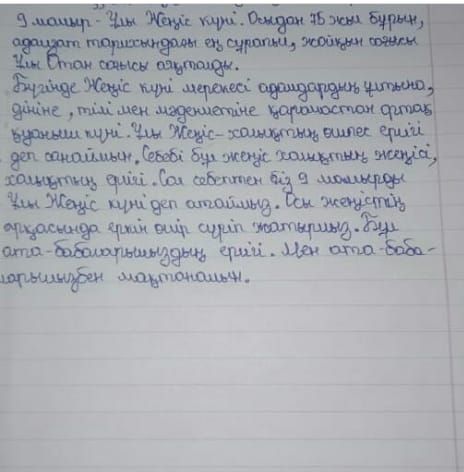 9 мамыр - Ұлы Жеңіс күні. Осыдан 75 жыл бұрын,
адамзат тарихындағы ең сұрапыл, жойқын соғысы
Ұлы Отан соғысы аяқталды.
Бүгінде Жеңіс күні мерекесі адамдардың ұлтына,
дініне, тілі мен мәдениетіне қарамастан ортақ
қуаныш күні. Ұлы Жеңіс - халықтың өшпес ерлігі
деп санаймын. Себебі бұл жеңіс халықтың жеңісі,
халықтың ерлігі. Сол себептен біз 9 мамырды
Ұлы Жеңіс күні деп атаймыз. Осы жеңістің
арқасында еркін өмір сүріп жатырмыз. Бұл
ата-бабаларымыздың ерлігі. Мен ата-баба-
ларымызбен мақтанамын.